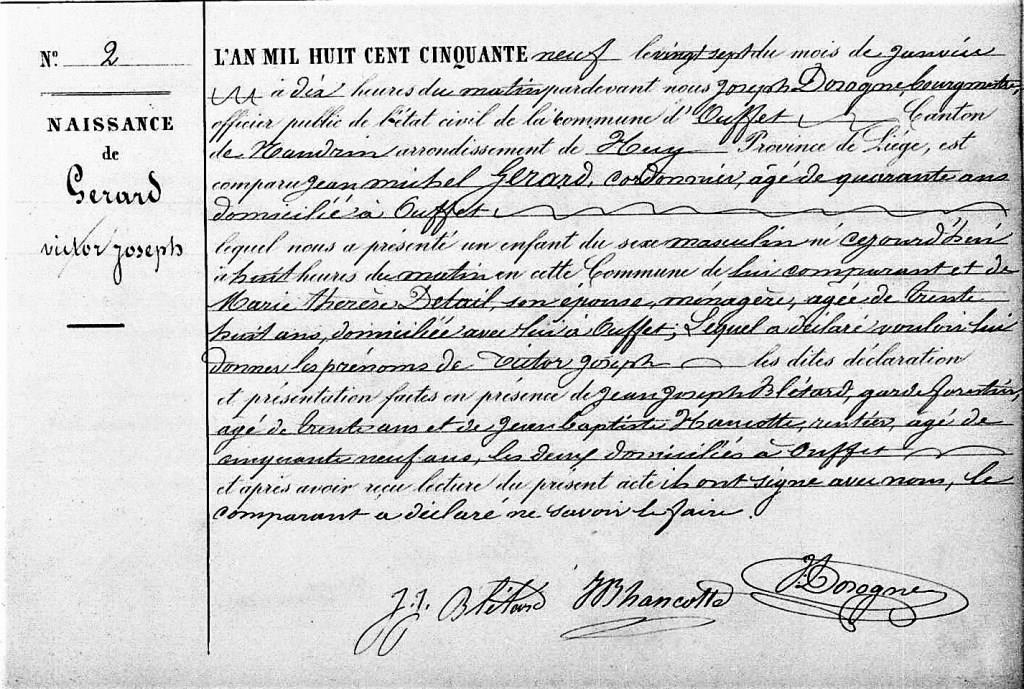 N° 2
NAISSANCE
de
Gerard
victor joseph
L'AN MIL HUIT CENT CINQUANTE neuf le vingt sept du mois de janvier
à dix heures du matin pardevant nous Joseph Dorogne bourgmestre,
officier public de l'état civil de la commune d'Ouffet Canton
de Nandrin arrondissement de Huy Province de Liége, est
comparu jean michel Gerard, cordonnier, âgé de quarante ans
domicilié à Ouffet
lequel nous a présenté un enfant du sexe masculin né cejourd'hui
à huit heures du matin en cette Commune de lui comparant et de
Marie thérèse Detail, son épouse, ménagère, agée de trente
huit ans, domiciliée avec lui à Ouffet; Lequel a déclaré vouloir lui
donner les prénoms de victor joseph les dites déclaration
et présentation faites en présence de jean joseph Blétard, garde forestier,
agé de trente ans et de jean baptiste Hancotte, rentier, agé de
cinquante neuf ans, les deux domiciliés à Ouffet
et après avoir reçu lecture du présent acte ils ont signé avec nous, le
comparant a déclaré ne savoir le faire.
J. J. Blétard JB hancotte J. Dorogne